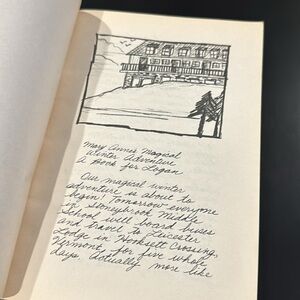 Mary Anne's Magical
Winter Adventure
A Book for Logan
Our magical winter
adventure is about to
begin! Tomorrow everyone
in Stoneybrook Middle
School will board buses
and travel to Leicester
Lodge in Hooksett Crossing,
Vermont, for five whole
days. Actually, more like